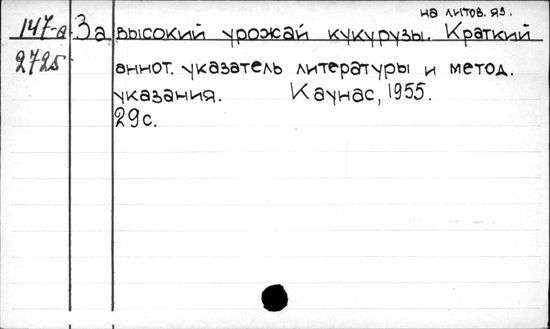 на литов. яз.
147-а За высокий урожай кукурузы. Краткий
2725 аннот. указатель литературы и метод.
указания. Каунас, 1955.
29с.